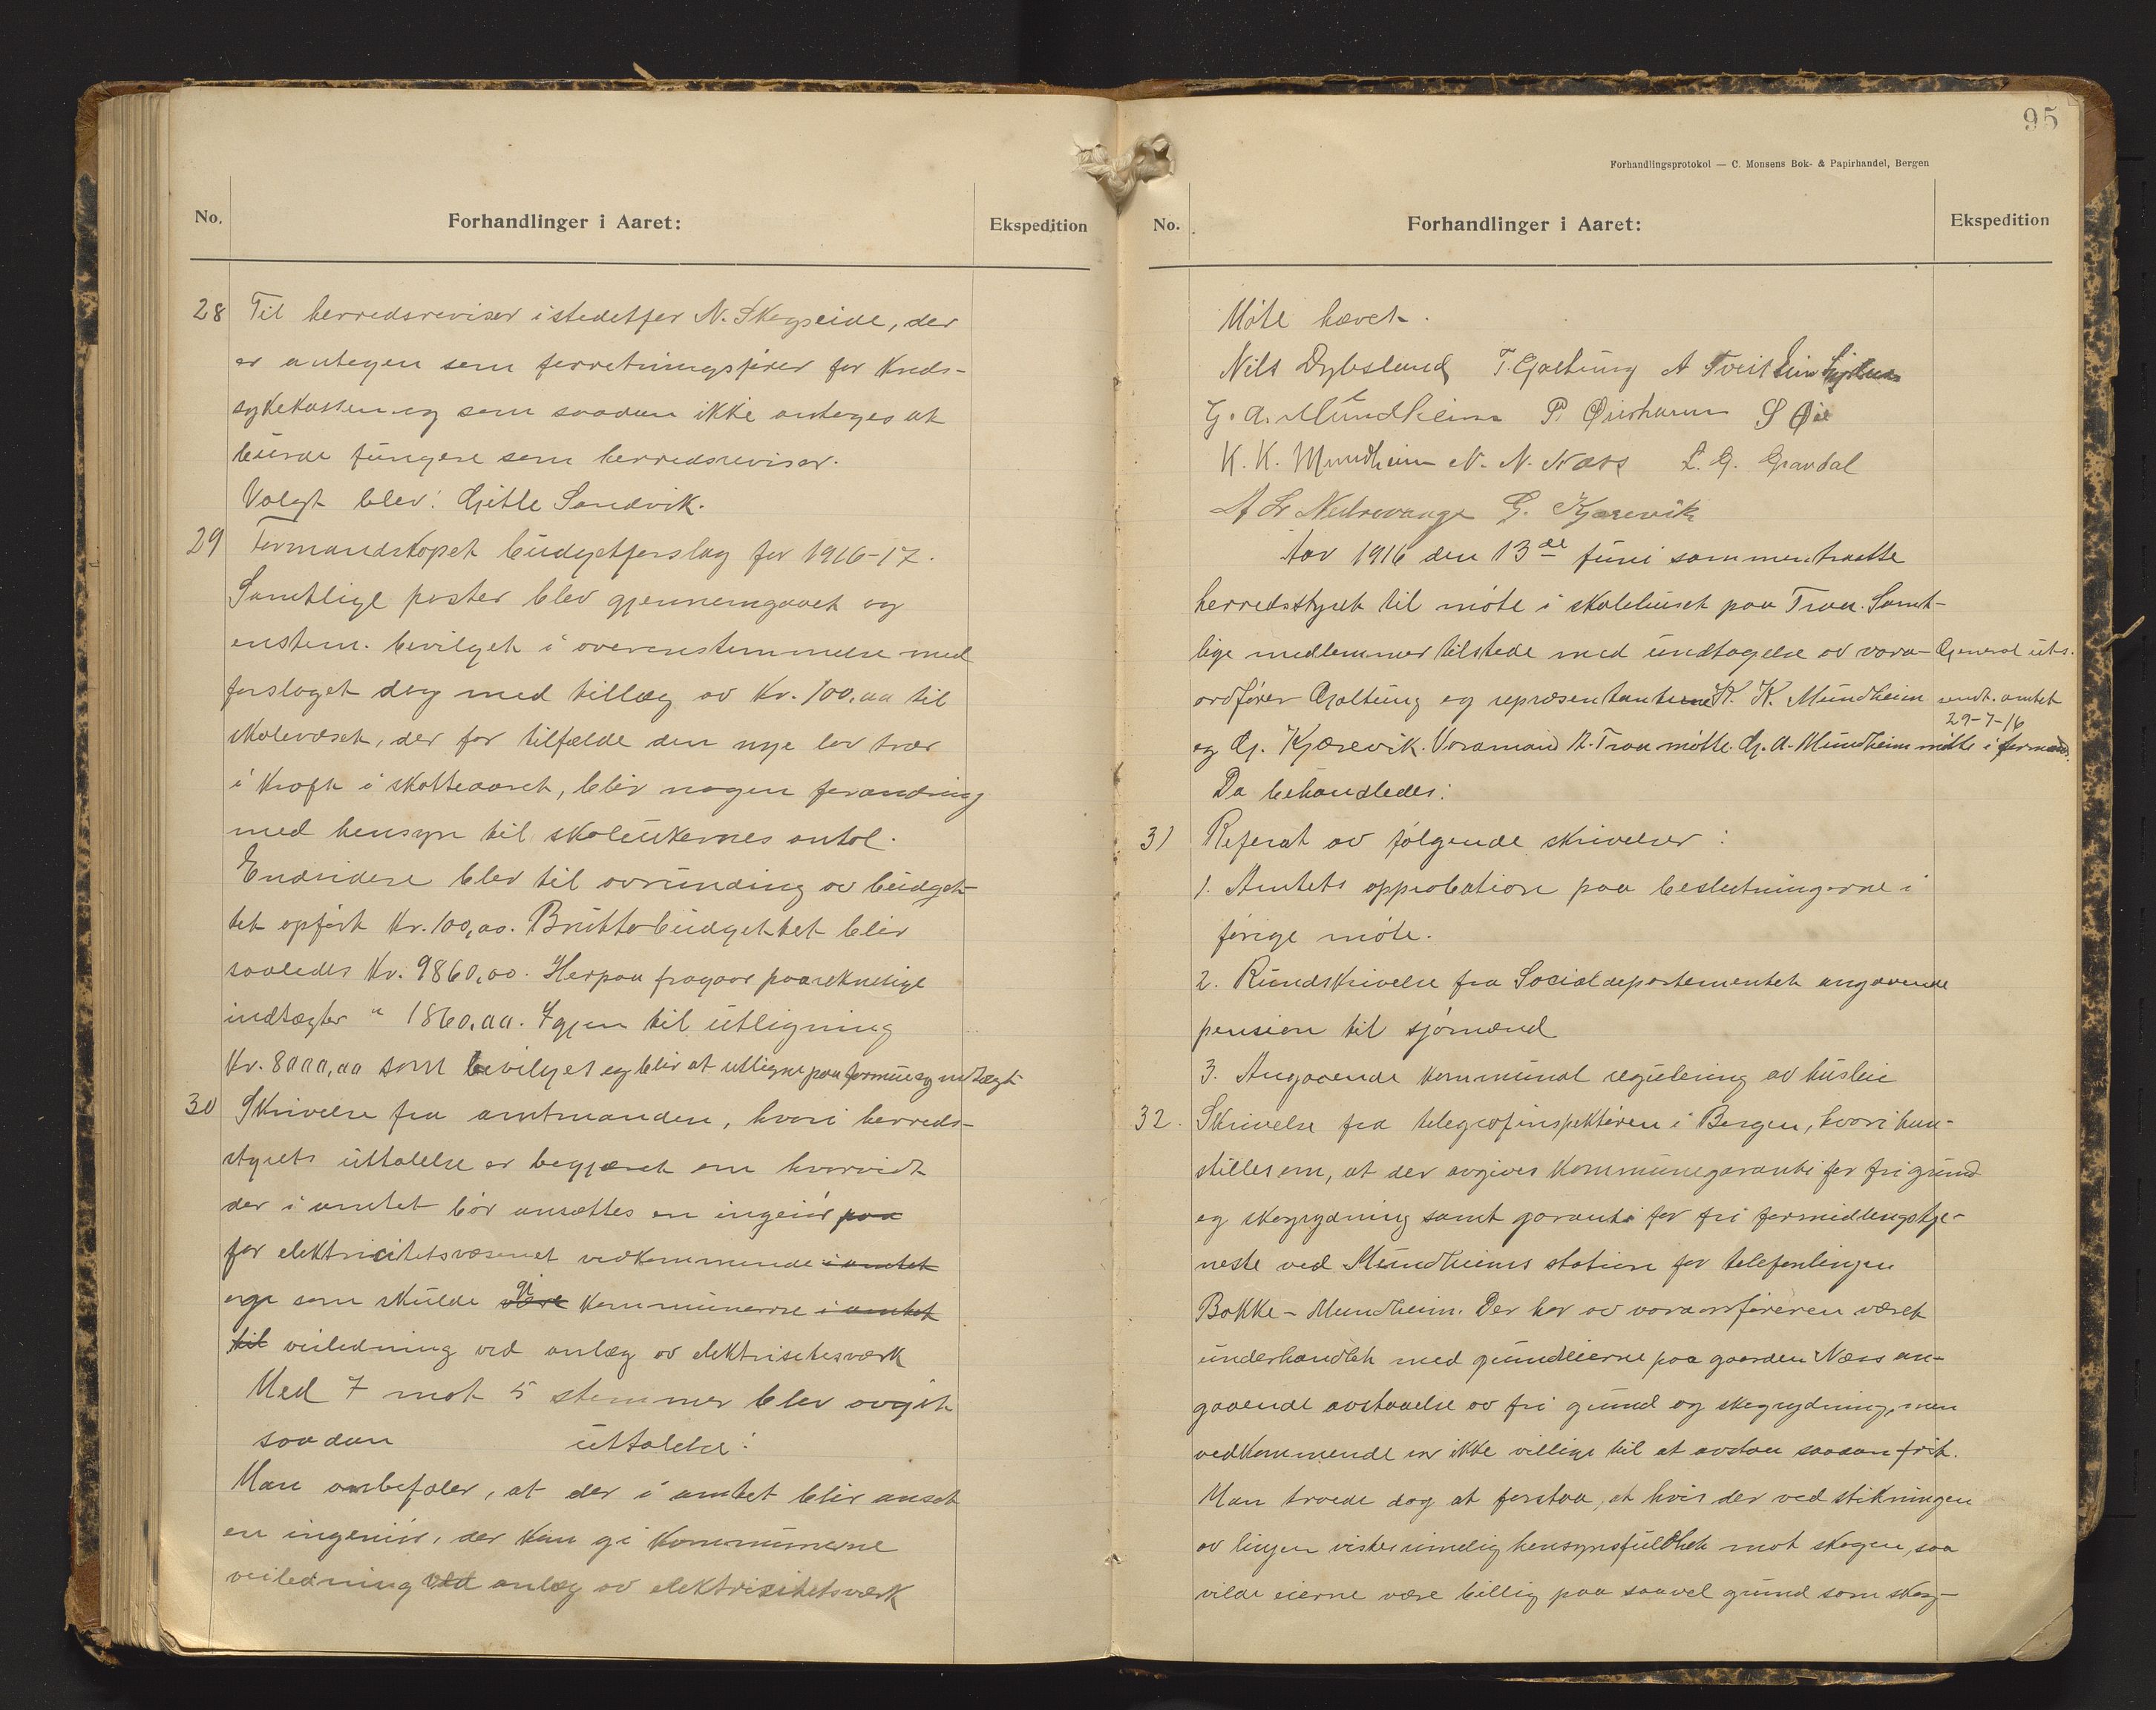 No.
Forhandlinger i Aaret:
Ekspedition
28 Til herredsrevisor istedetfor N. Skogseide, der
er antagen som forretningsfører for Kreds-
sykekassen og som saadan ikke antages at
burde fungere som herredsrevisor.
Valgt blev: Gitle Sandvik.
29 Formandskapet budgetforslag for 1916-17.
Samtlige poster blev gjennemgaaet og
enstem. bevilget i overensstemmelse med
forslaget dog med tillæg av Kr. 100,00 til
skolevæset, der for tilfælde den nye lov træer
i kraft i skatteaaret, blir nogen forandring
med hensyn til skoleukernes antal.
Endvidere blev til avrunding av budget-
tet opført Kr. 100,00. Bruttobudgettet blir
saaledes Kr. 9860,00. Herpaa fragaar paareknelige
indtægter " 1860,00. Igjen til utligning
Kr. 8000,00 som bevilges og blir at utligne paa formue og indtægt
30 Skrivelse fra amtmanden, hvori herreds-
styrets uttalelse er begjæret om hvorvidt
der i amtet bör ansættes en ingeiör paa
for elektricitetsvæsenet vedkommende i amtet
og som skulde være gi kommunerne i amtet
til veiledning ved anlæg av elektrisitetsværk
Med 7 mot 5 stemmer blev avgit
saadan uttalelse:
Man anbefaler, at der i amtet blir ansat
en ingeniör, der kan gi kommunerne
veiledning ved anlæg av elektricitetsværk
95
Forhandlingsprotokol — C. Monsens Bok- & Papirhandel, Bergen
No.
Forhandlinger i Aaret:
Ekspedition
Möte hævet.
Nils Dybsland T. Galtung A Tveit
G. A. Mundheim P. Øierhavn S Øie
K. K. Mundheim N. N. Næss L. G. Gravdal
A L Nedrevaage G. Kjærevik
Aar 1916 den 13de juni sammentraatte
herredsstyret til möte i skolehuset paa Traa. Samt-
lige medlemmer tilstede med undtagelse av vara-
ordfører Galtung og repræsentanterne K. K. Mundheim
og G. Kjærevik. Varamand A. Traa mötte. G. A. Mundheim mötte i formand.
General uts.
sendt. amtet
29-7-16
Da behandledes:
31 Referat av fölgende skrivelser:
1. Amtets approbation paa beslutningerne i
forige möte.
2. Rundskrivelse fra Socialdepartementet angaaende
pension til sjömænd
3. Angaaende kommunal regulering av husleie
32. Skrivelse fra telegrafinspektören i Bergen, hvori hen-
stilles om, at der avgives kommunegaranti for fri grund
og skogrydning samt garanti for fri formidlingstje-
neste ved Mundheims station for telefonlinjen
Bakke – Mundheim. Der har av varaordføreren været
underhandlet med grundeierne paa gaarden Næss an-
gaaende avstaaelse av fri grund og skogrydning, men
vedkommende er ikke villige til at avstaa saadan frit.
Man troede dog at forstaa, at hvis der ved stikningen
av linjen vistes rimelig hensynsfuldhet mot skogen, saa
vilde eierne være billig paa saavel grund som skog-